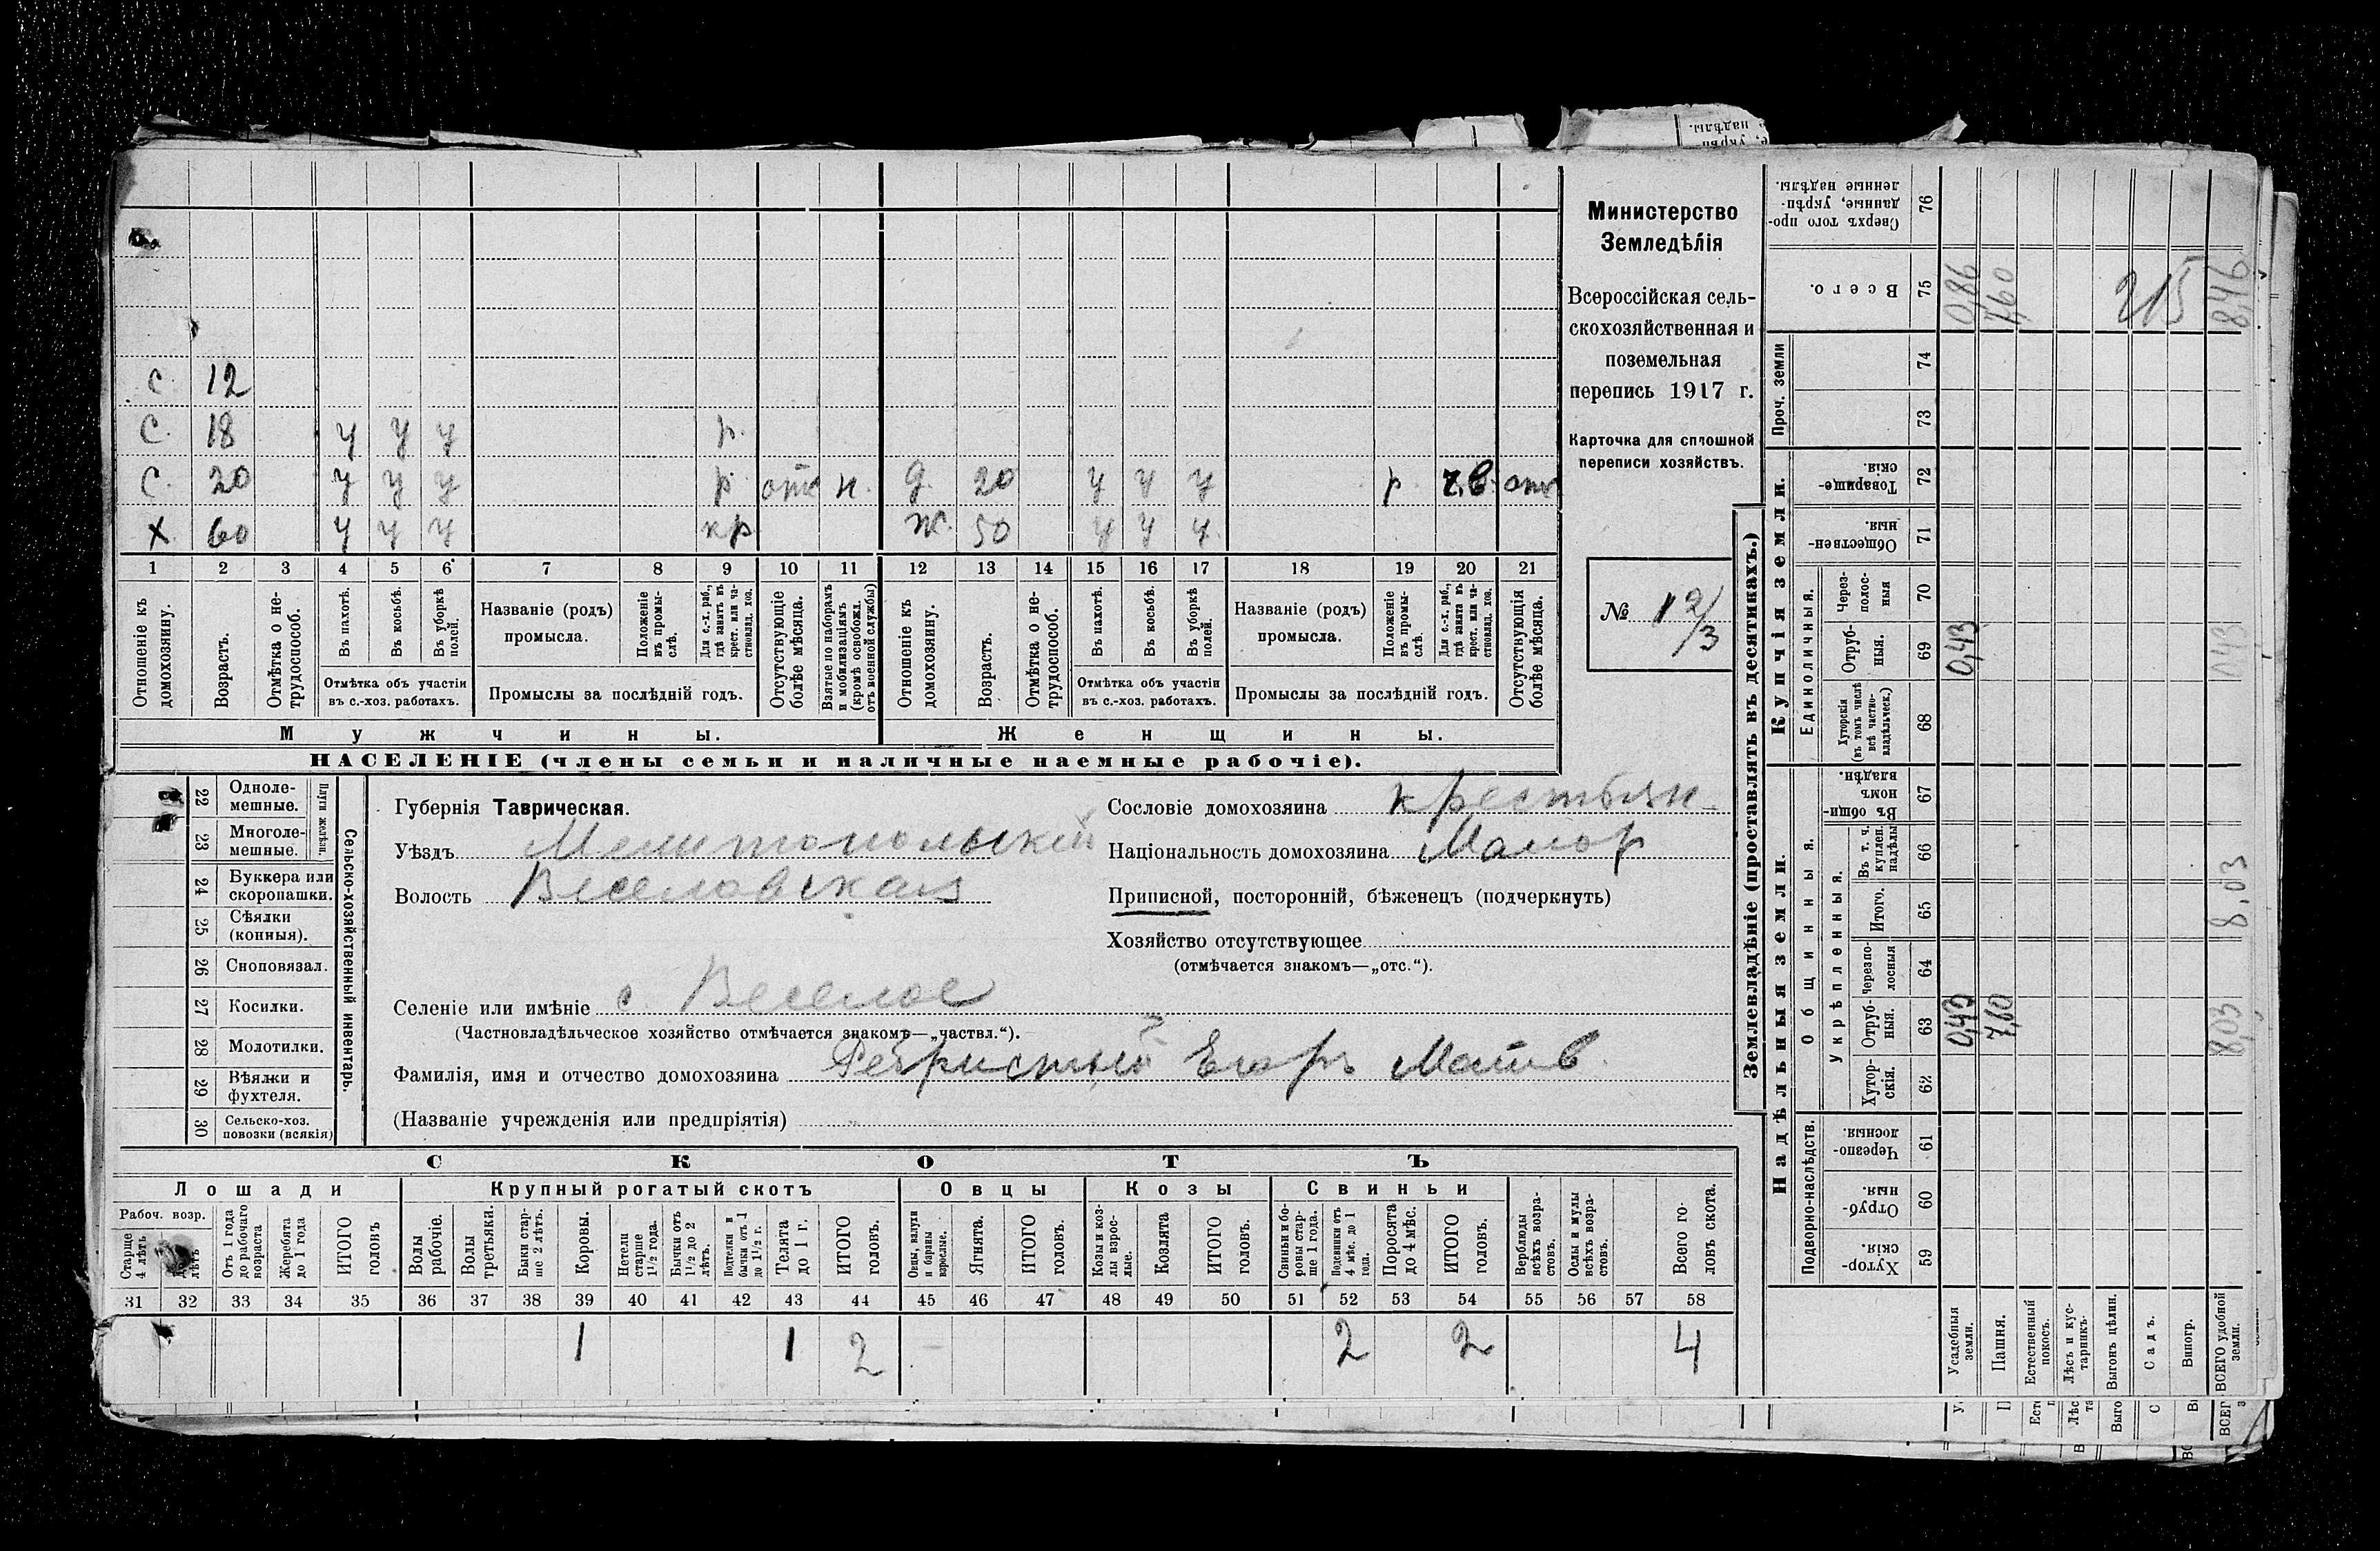 с. 12
С. 18 у у у р.
С. 20 у у у р. отс н. д. 20 у у у р. ч.в. отс
Х 60 у у у кр ж. 50 у у у
1 2 3 4 5 6 7 8 9 10 11 12 13 14 15 16 17 18 19 20 21
Отношеніе къ домохозяину.
Возрастъ.
Отмѣтка о не-трудоспособ.
Въ пахотѣ.
Въ косьбѣ.
Въ уборкѣ полей.
Отмѣтка объ участіи
въ с.-хоз. работахъ.
Названіе (родъ)
промысла.
Положеніе въ промы-слѣ.
Для с.-х. раб., гдѣ занятъ въ крест. или ча-стновлад. хоз.
Промыслы за послѣдній годъ.
Отсутствующіе болѣе мѣсяца.
Взятые по наборамъ и мобилизаціямъ (кромѣ освобожд. отъ военной службы)
Отношеніе къ домохозяину.
Возрастъ.
Отмѣтка о не-трудоспособ.
Въ пахотѣ.
Въ косьбѣ.
Въ уборкѣ полей.
Отмѣтка объ участіи
въ с.-хоз. работахъ.
Названіе (родъ)
промысла.
Положеніе въ промы-слѣ.
Для с.-х. раб., гдѣ занята въ крест. или ча-стновлад. хоз.
Промыслы за послѣдній годъ.
Отсутствующія болѣе мѣсяца.
Мужчины. Женщины.
НАСЕЛЕНІЕ (члены семьи и наличные наемные рабочіе).
Министерство
Земледѣлія
Всероссійская сель-
скохозяйственная и
поземельная
перепись 1917 г.
Карточка для сплошной
переписи хозяйствъ.
№ 12/3
22 Одноле-мешные.
23 Многоле-мешные.
Плуги желѣзн.
24 Буккера или скоропашки.
25 Сѣялки (конныя).
26 Сноповязал.
27 Косилки.
28 Молотилки.
29 Вѣялки и фухтеля.
30 Сельско-хоз. повозки (всякія)
Сельско-хозяйственный инвентарь.
Губернія Таврическая.
Уѣздъ Мелитопольскій
Волость Веселовская
Селеніе или имѣніе с. Веселое
(Частновладѣльческое хозяйство отмѣчается знакомъ—„частвл.“).
Фамилія, имя и отчество домохозяина Егоръ Матв.
(Названіе учрежденія или предпріятія)
Сословіе домохозяина крестьян
Національность домохозяина Малор
Приписной, посторонній, бѣженецъ (подчеркнуть)
Хозяйство отсутствующее
(отмѣчается знакомъ—„отс.“).
СКОТЪ
Лошади
Крупный рогатый скотъ
Овцы
Козы
Свиньи
Рабоч. возр.
Старше 4 лѣтъ
лѣтъ
Отъ 1 года до рабочаго возраста
Жеребята до 1 года
ИТОГО головъ
Волы рабочіе.
Волы третьяки.
Быки стар-ше 2 лѣтъ.
Коровы.
Нетели старше 1½ года.
Бычки отъ 1½ до 2 лѣтъ.
Подтелки и бычки отъ 1 до 1½ г.
Телята до 1 г.
ИТОГО головъ.
Овцы, валухи и бараны взрослые.
Ягнята.
ИТОГО головъ.
Козы и коз-лы взрос-лые.
Козлята
ИТОГО головъ.
Свиньи и бо-ровы стар-ше 1 года.
Подсвинки отъ 4 мѣс. до 1 года.
Поросята до 4 мѣс.
ИТОГО головъ.
Верблюды всѣхъ возра-стовъ.
Ослы и мулы всѣхъ возра-стовъ.
Всего го-ловъ скота.
31 32 33 34 35 36 37 38 39 40 41 42 43 44 45 46 47 48 49 50 51 52 53 54 55 56 57 58
1 1 2 2 2 4
Землевладѣніе (проставлять въ десятинахъ.)
Надѣльныя земли.
Купчія земли.
Проч. земли
Подворно-наслѣдств.
Общинныя.
Укрѣпленныя.
Единоличныя.
59 Хутор-скія.
60 Отруб-ныя.
61 Черезпо-лосныя.
62 Хутор-скія.
63 Отруб-ныя. 0,43 7,60 8,03
64 Черезпо-лосныя
65 Итого. 8,03
66 Въ т. ч. куплен. надѣлы
67 Въ общи-номъ владѣн.
68 Хуторскія (въ томъ числѣ всѣ частно-владѣльческ.)
69 Отруб-ныя. 0,43 0,43
70 Через-полос-ныя
71 Обществен-ныя.
72 Товарище-скія.
73
74
75 Всего. 0,86 7,60 215 8,46
76 Сверхъ того про-данные, укрѣп-ленные надѣлы.
Усадебныя земли.
Пашня.
Естественный покосъ.
Лѣсъ и кус-тарникъ.
Выгонъ цѣлин.
Садъ.
Виногр.
ВСЕГО удобной земли.